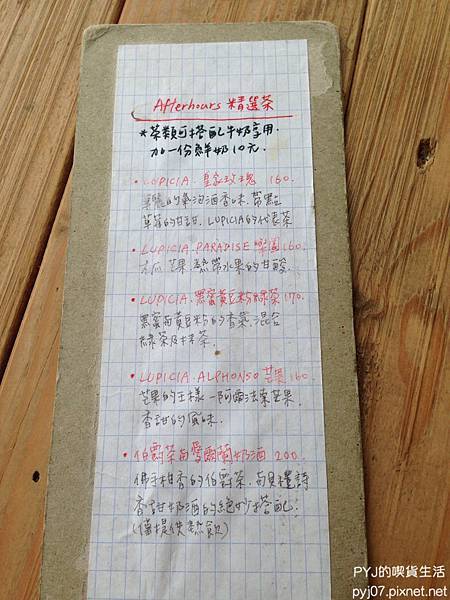 Afterhours 精選茶
*茶類可搭配牛奶享用.
加一份鮮奶10元.
• LUPICIA. 皇家玫瑰 160.
華麗的氣泡酒香味. 帶點
草莓的甘甜. LUPICIA的代表茶
• LUPICIA. PARADISE 樂園 160.
木瓜 芒果 熱帶水果的甘酸
• LUPICIA. 黑蜜黃豆粉綠茶 170.
黑蜜与黃豆粉的香氣. 混合
綠茶及抹茶.
• LUPICIA. ALPHONSO 芒果 160.
芒果的王樣-阿爾法索芒果.
香甜的風味.
• 伯爵茶与愛爾蘭奶酒 200.
佛手柑香的伯爵茶. 与貝禮詩
香甜奶酒的絕妙搭配.
(僅提供熱飲)
PYJ的喫貨生活
pyj07.pixnet.net